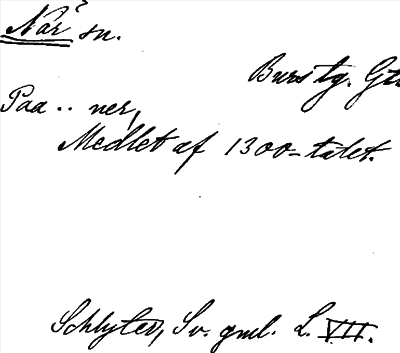 När sn.
Burs tg. Gtl
Paa .. ner,
Medlet af 1300-talet.
Schlyter, Sv. gml. L. VII.